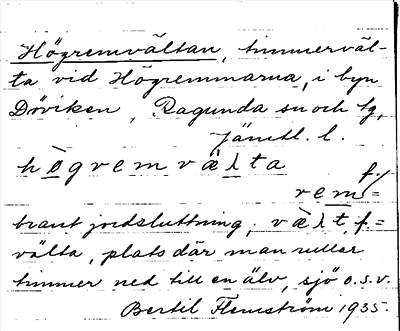 Högremvältan, timmerväl-
ta vid Högremmarna, i byn
Döviken, Ragunda sn och tg,
Jämtl. l.
høgremvälta
rem f. =
brant jordsluttning, vält f. =
välta, plats där man rullar
timmer ned till en älv, sjö o.s.v.
Bertil Flemström 1935.